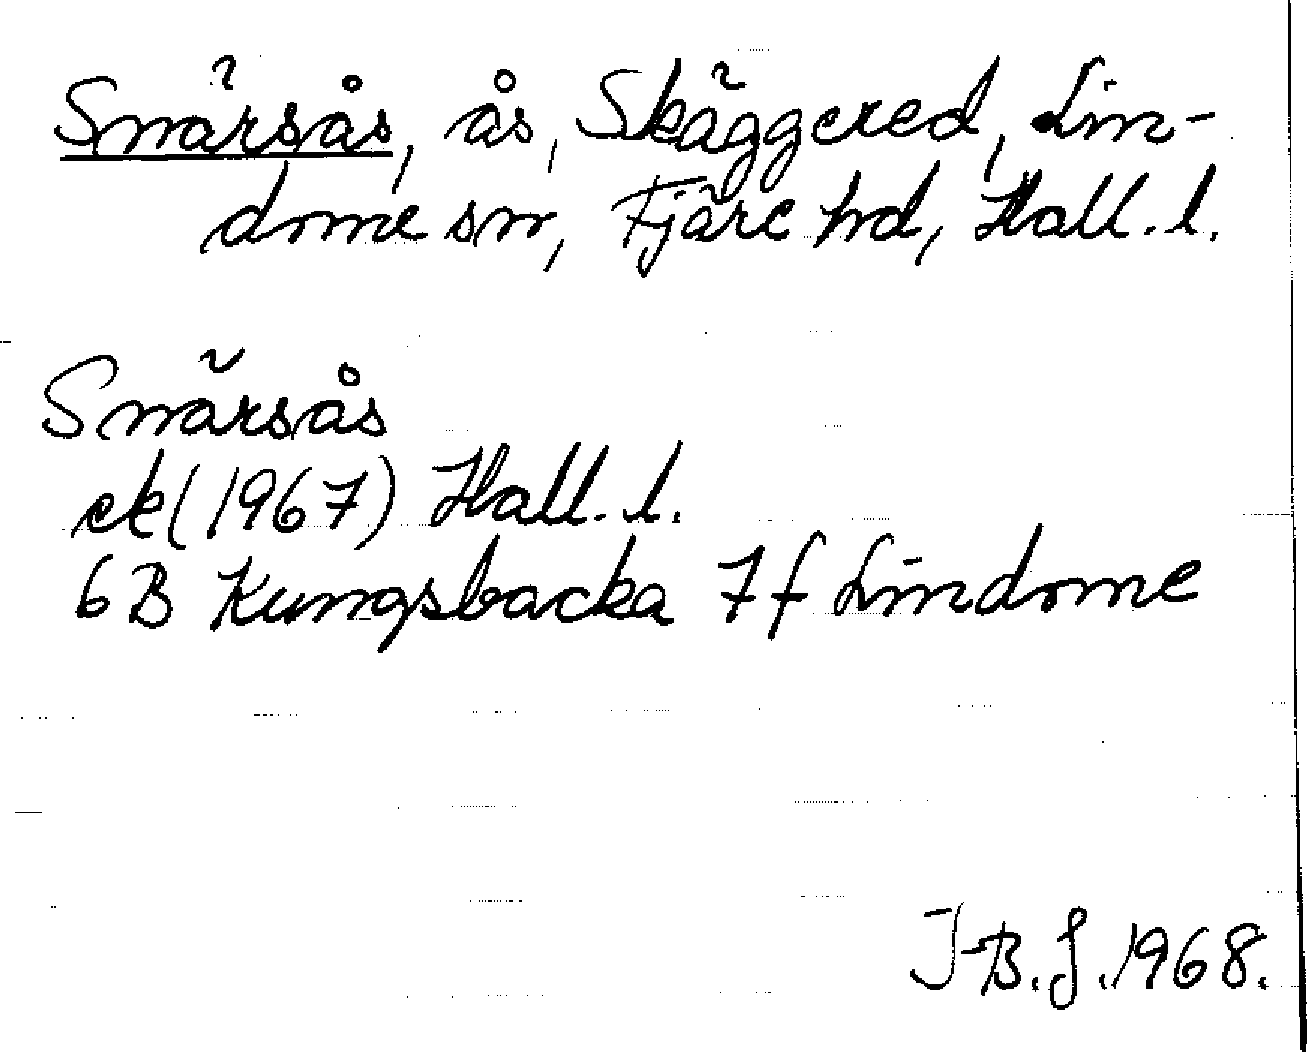 Snärsås, ås, Skäggered, Lin-
dome sn, Fjäre hd, Hall. l.
Snärsås
ek (1967) Hall. l.
6B Kungsbacka 7f Lindome
J-B. J. 1968.